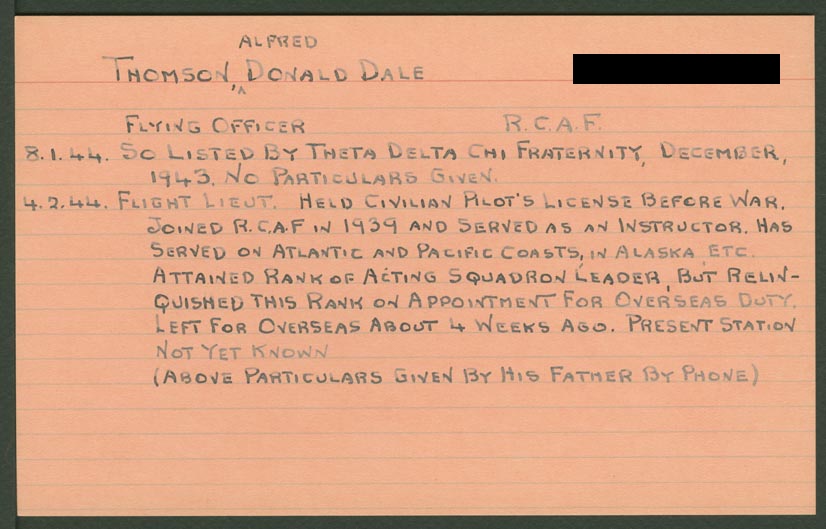 ALFRED
THOMSON, ^ DONALD DALE
FLYING OFFICER R.C.A.F.
8.1.44. SO LISTED BY THETA DELTA CHI FRATERNITY, DECEMBER,
1943. NO PARTICULARS GIVEN.
4.2.44. FLIGHT LIEUT. HELD CIVILIAN PILOT'S LICENSE BEFORE WAR.
JOINED R.C.A.F IN 1939 AND SERVED AS AN INSTRUCTOR. HAS
SERVED ON ATLANTIC AND PACIFIC COASTS, IN ALASKA, ETC.
ATTAINED RANK OF ACTING SQUADRON LEADER, BUT RELIN-
QUISHED THIS RANK ON APPOINTMENT FOR OVERSEAS DUTY.
LEFT FOR OVERSEAS ABOUT 4 WEEKS AGO. PRESENT STATION
NOT YET KNOWN
(ABOVE PARTICULARS GIVEN BY HIS FATHER BY PHONE)